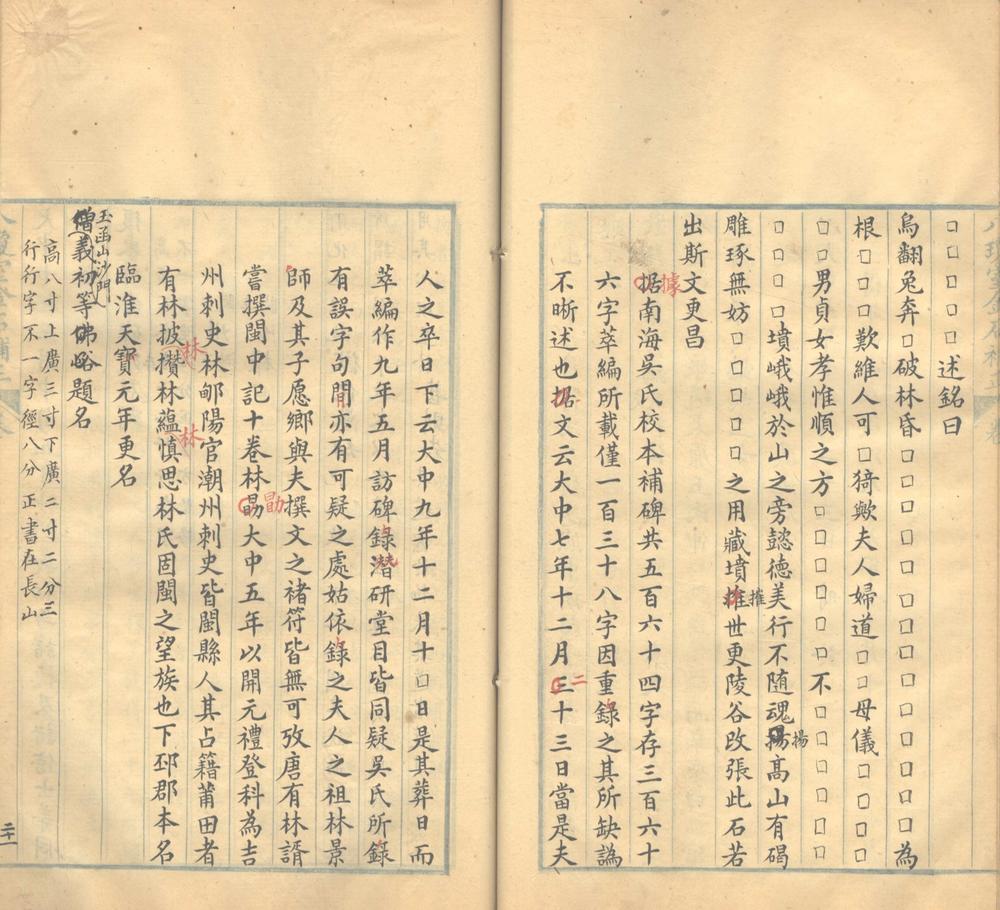 □□□□□述銘曰
烏翻兔奔□破林昏□□□□□□□□□□為
根□□□歎維人可□猗歟夫人婦道□□母儀□□□□
□□男貞女孝惟順之方□□□□□□不□□□□□
□□□□墳峨峨於山之旁懿德美行不随魂揚揚高山有碣
雕琢無妨□□□□□之用藏墳摧摧世更陵谷改張此石若
出斯文更昌
据據南海吳氏校本補碑共五百六十四字存三百六十
六字萃編所載僅一百三十八字因重錄之其所缺譌
不晰述也据文云大中七年十二月三二十三日當是夫
人之卒日下云大中九年十二月十□日是其葬日而
萃編作九年五月訪碑錄潛研堂目皆同疑吳氏所錄
有誤字句間亦有可疑之處姑依錄之夫人之祖林景
師及其子愿鄉與夫撰文之褚符皆無可攷唐有林諝
嘗撰閩中記十卷林勗勖大中五年以開元禮登科為吉
州刺史林郇陽官潮州刺史皆閩縣人其占籍莆田者
有林披林攢林蘊林慎思林氏固閩之望族也下邳郡本名
臨淮天寶元年更名
玉函山沙門
僧義初等佛峪題名
高八寸上廣三寸下廣二寸二分三
行行字不一字徑八分正書在長山